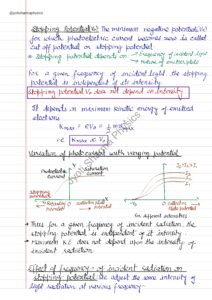 @prishamyphysics
Stopping Potential(V₀) The minimum negative potential(V₀)
for which photoelectric current becomes zero is called
cut off potential or stopping potential.
→ Stopping potential depends on → frequency of incident light
→ nature of emitter plate
For a given frequency of incident light the stopping
potential is independent of its intensity.
Stopping potential V₀ does not depend on intensity
It depends on maximum kinetic energy of emitted
electrons
Kmax = eV₀ = ½ m
ie Kmax ∝ V₀
Variation of photocurrent with varying potential
Photoelectric current
Saturation current
Stopping potential
Retarding potential
Collector plate potential
For different intensities
→ Thus for a given frequency of incident radiation the
stopping potential is independent of its intensity
→ maximum KE does not depend upon the intensity of
incident radiation.
Effect of frequency of incident radiation on
stopping potential We adjust the same intensity of
light radiation at various frequency